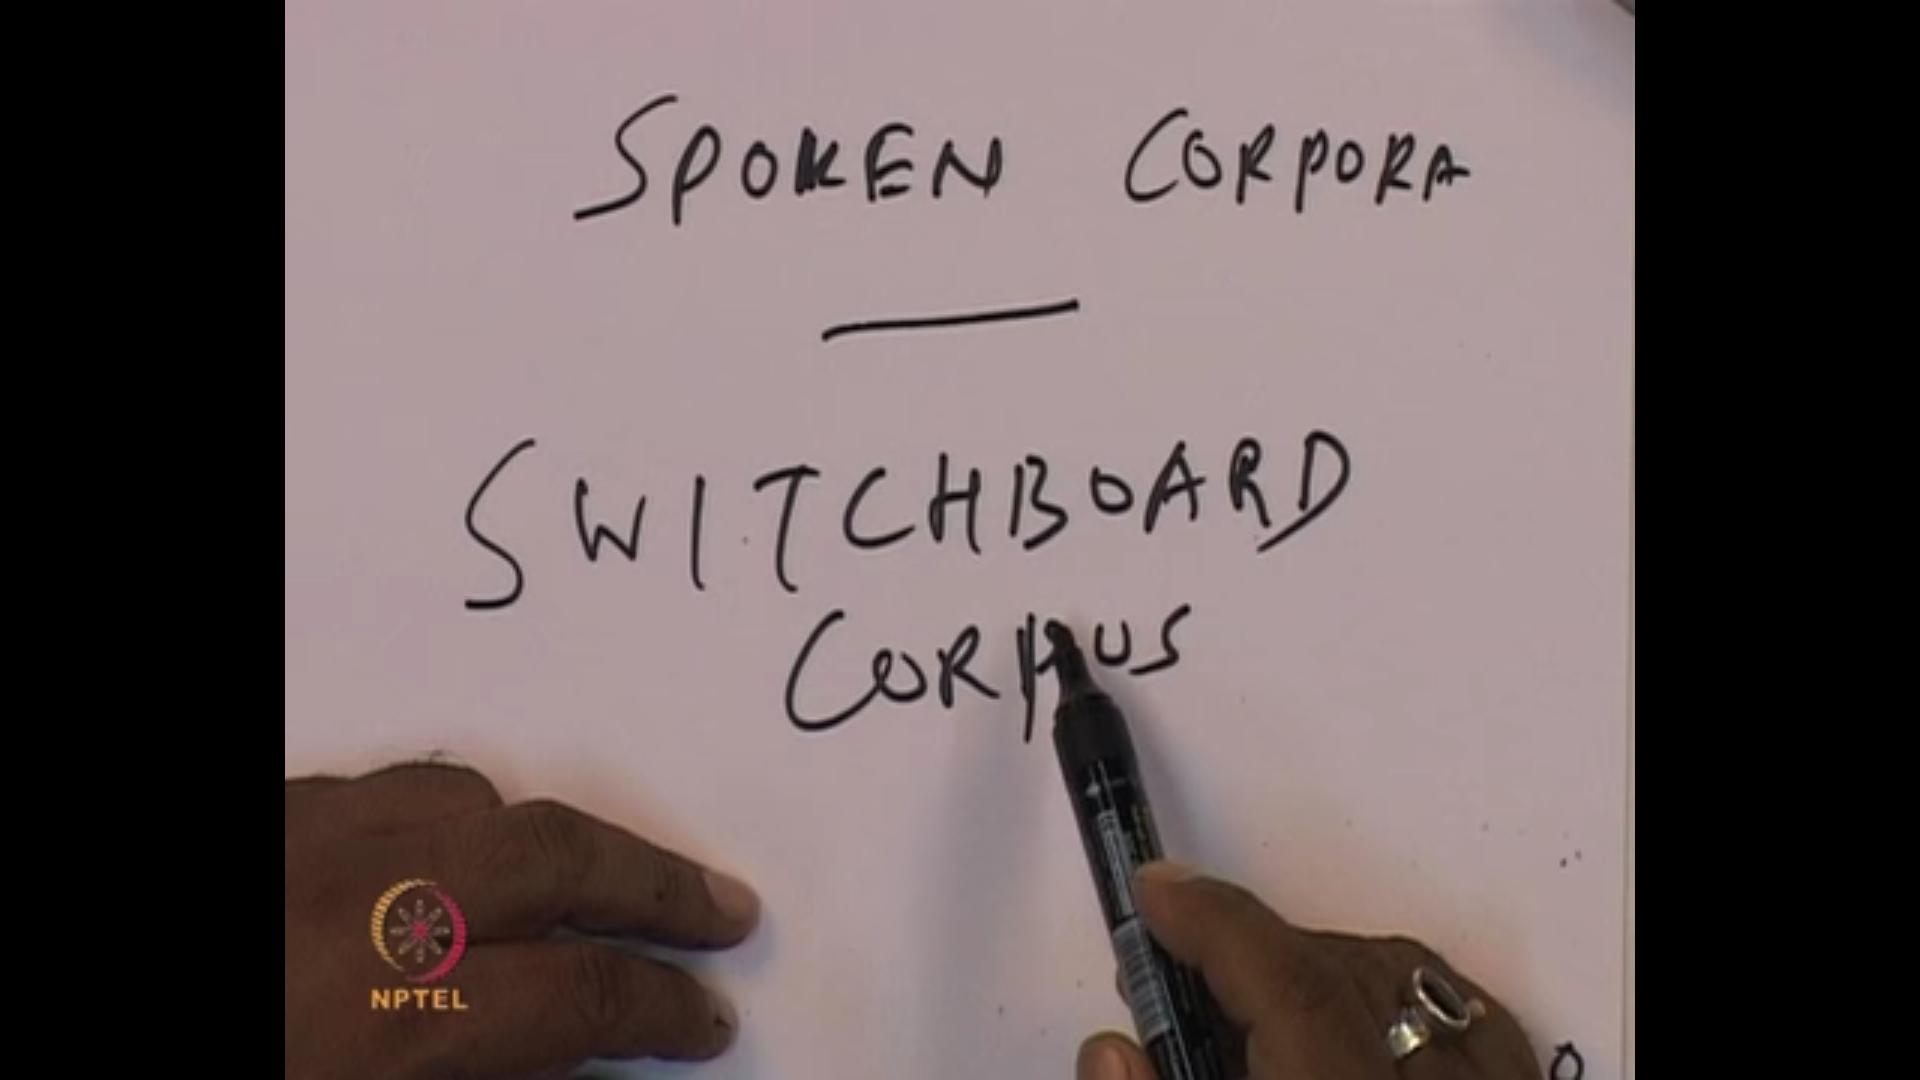 SPOKEN CORPORA
SWITCHBOARD
CORPUS
NPTEL